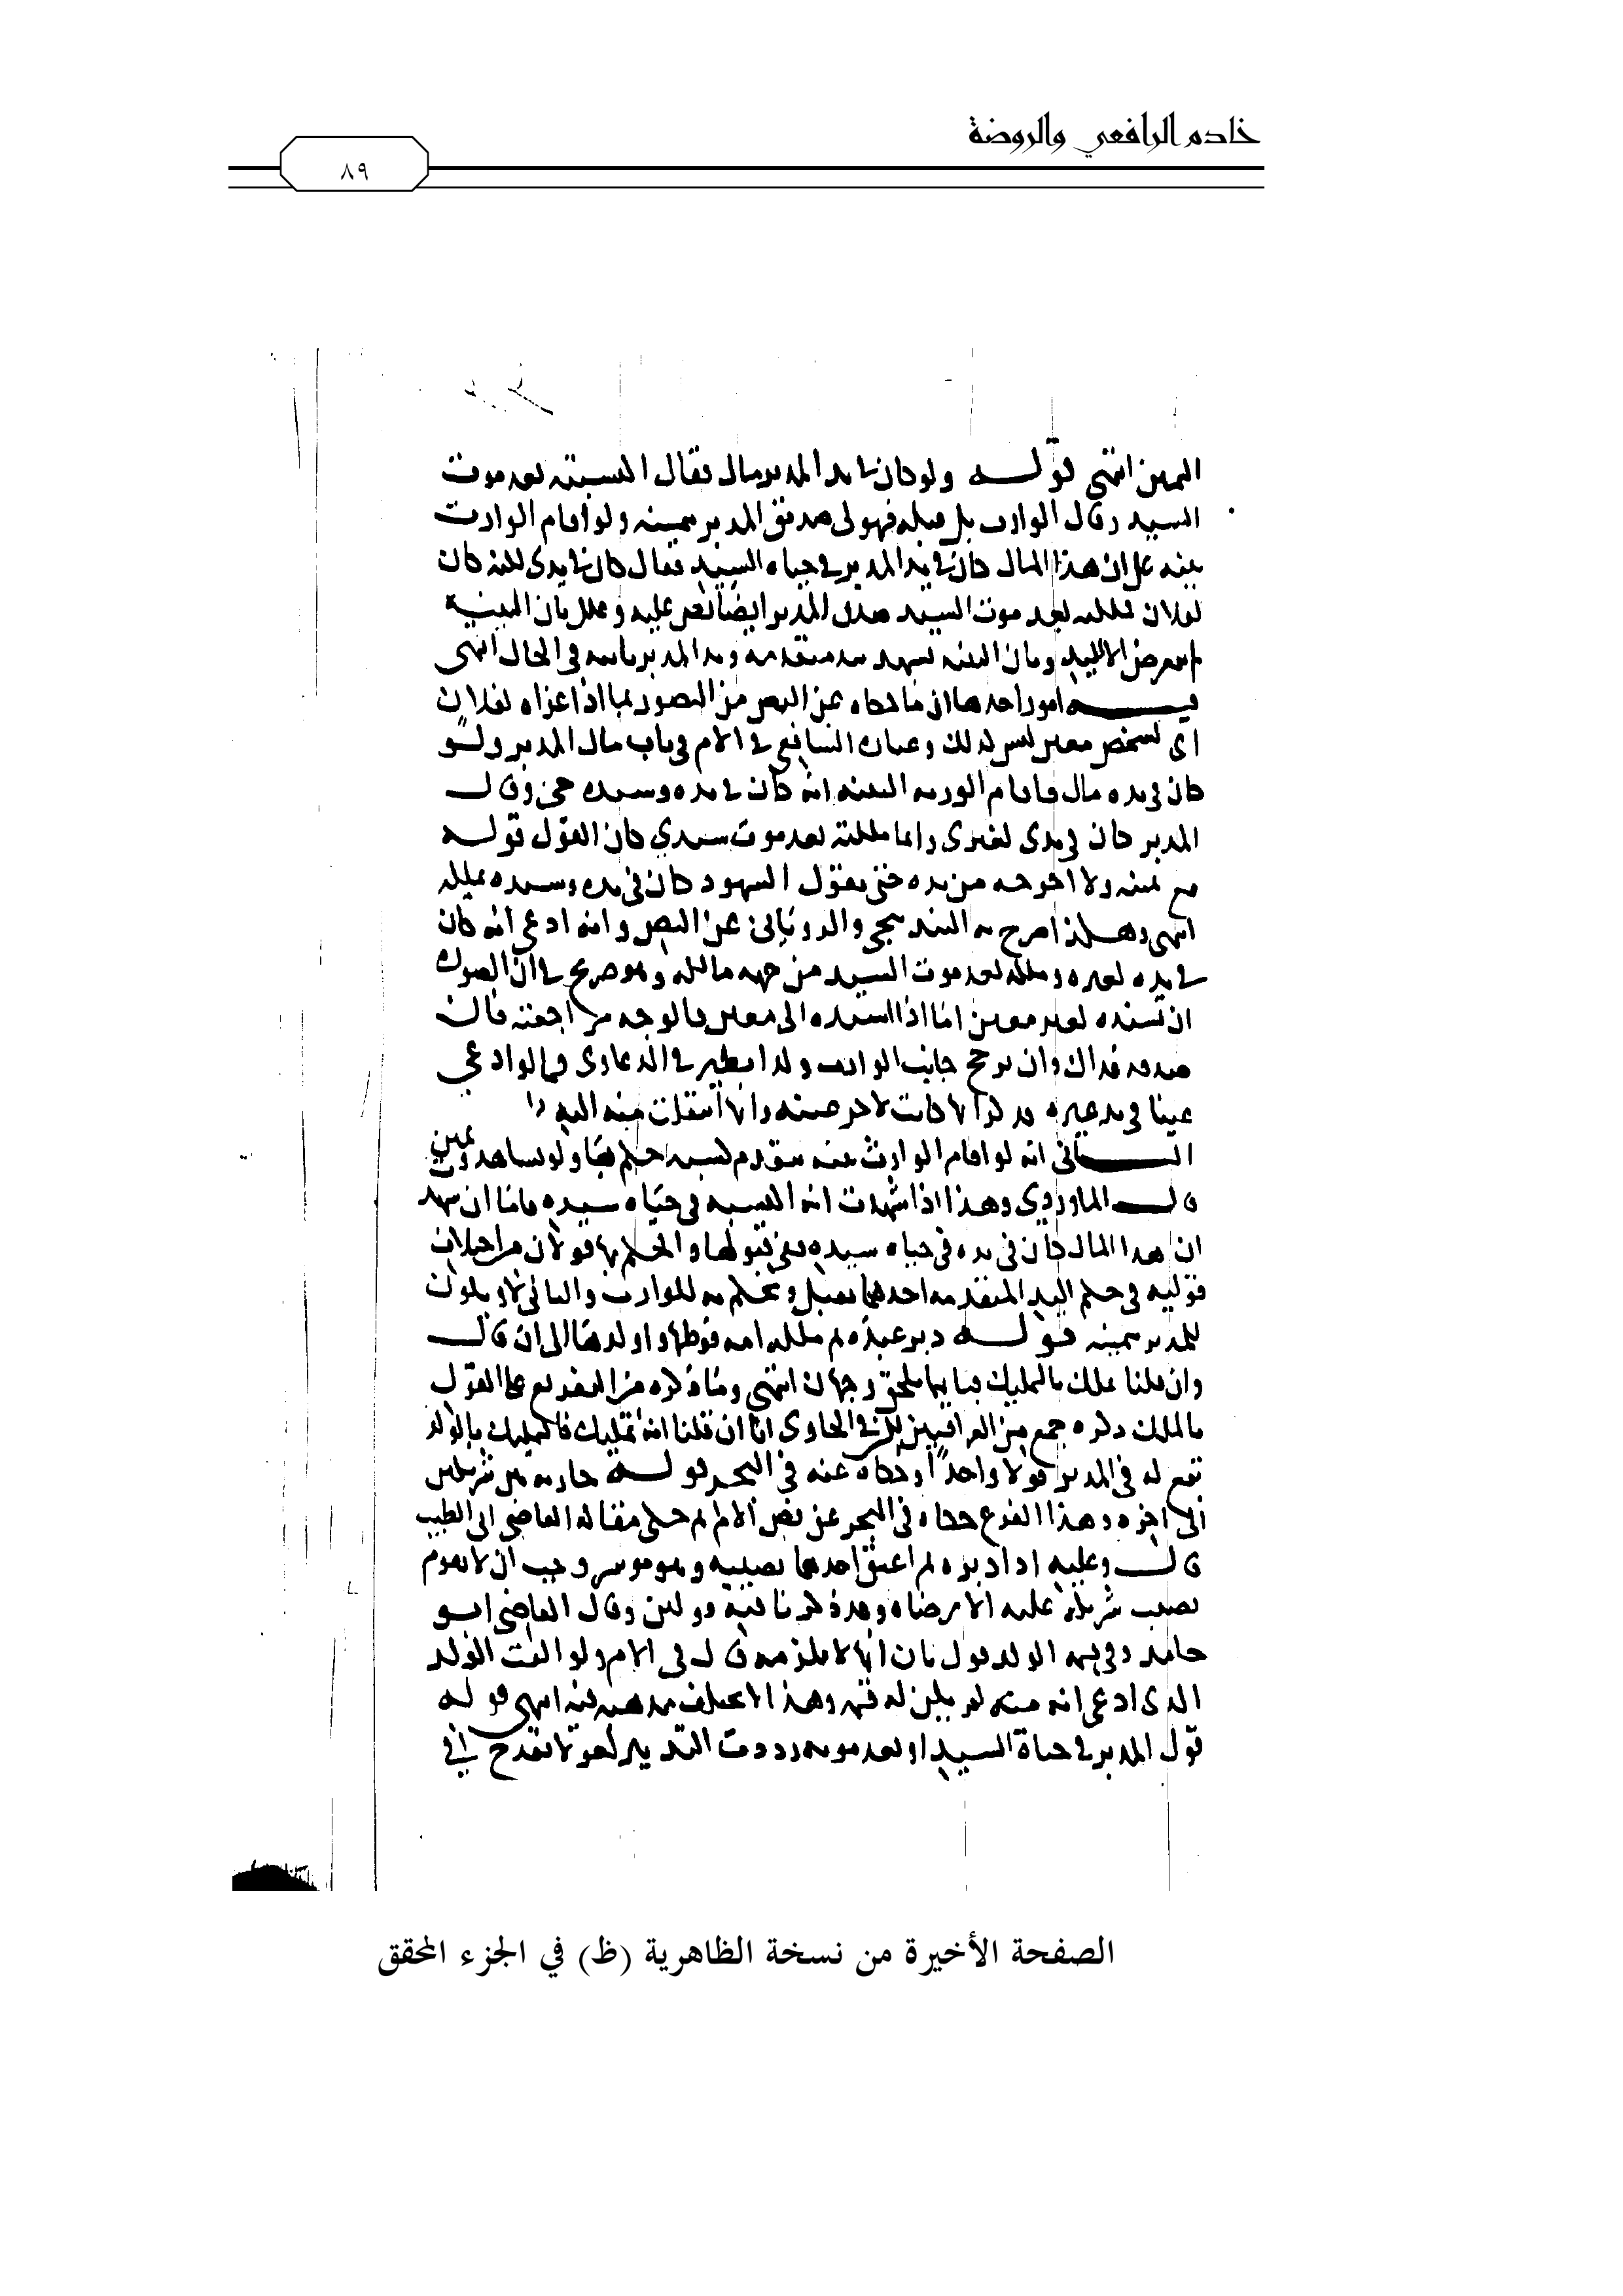 خادم الرافعي والروضة
٨٩
اليمين انتهى قوله ولو كان في يد المدبر مال فقال اكتسبته بعد موت
السيد وقال الوارث بل قبله فهو لي صدق المدبر بيمينه ولو اقام الوارث
بينه على ان هذا المال كان في يد المدبر في حياه السيد فقال كان في يدي لكنه كان
لفلان فملكته بعد موت السيد صدق المدبر ايضا نص عليه وعلل بان البينه
لم تتعرض الا لليد وبان البينه تشهد بيد متقدمه ويد المدبر ثابته في الحال انتهى
فيه امور احدها ان ما حكاه عن النص من التصوير بما اذا عزاه لفلان
اي لشخص معين ليس كذلك وعباره الشافعي في الام في باب مال المدبر ولو
كان في يده مال فاقام الورثه البينه انه كان في يده وسيده حي وقال
المدبر كان في يدي لغيري وانما ملكته بعد موت سيدي كان القول قوله
مع يمينه ولا اخرجه من يده حتى يقول الشهود كان في يده وسيده يملكه
انتهى وهكذا صرح به البندنيجي والروياني عن النص وانه ادعى انه كان
في يده لغيره وملكه بعد موت السيد من جهه مالكه وهو صريح في ان الصوره
ان يسنده لغير معين اما اذا اسنده الى معين فالوجه مراجعته فان
صدقه فذاك وان ترجح جانب الوارث ولذا نظير في الدعاوى فيما لو ادعى
عينا في يد غيره
الثاني انه لو اقام الوارث بينه بتقدم كسبه حكم بها ولو بشاهد ويمين
قال الماوردي وهذا اذا شهدت انه اكتسبه في حياه سيده فاما ان شهد
ان هذا المال كان في يده في حياه سيده ففي قبولها والحكم بها قولان من اختلاف
قوليه في حكم اليد المتقدمه احدهما تقبل ويحكم به للوارث والثاني لا ويكون
للمدبر بيمينه قوله دبر عبده ثم ملكه امه فوطئها واولدها الى ان قال
وان قلنا يملك بالتمليك وجهان انتهى وما ذكره من التفريع على القول
بالملك ذكره جمع من العراقيين لكن في الحاوي اما ان قلنا انه تمليك
في المدبر قولا واحدا وحكاه عنه في البحر قوله جاريه بين شريكين
الى اخره وهذا الفرع حكاه في البحر عن نص الام ثم حكى مقاله القاضي ابي الطيب
قال وعليه اذا دبره ثم اعتق احدهما نصيبه وهو موسر وجب ان لا يقوم
نصيب شريكه عليه الا برضاه وقد ذكرنا فيه قولين وقال القاضي ابو
حامد وفي قيمه الولد قول بان انها لا تلزمه قال في الام ولو القت الولد
الذي ادعى انه منه لم يكن له قيمه وهذا لا يختلف مذهبه فيه انتهى قوله
قول المدبر في حياة السيد او بعد موته رددت التدبير لغو لا يقدح في
الصفحة الأخيرة من نسخة الظاهرية (ظ) في الجزء المحقق